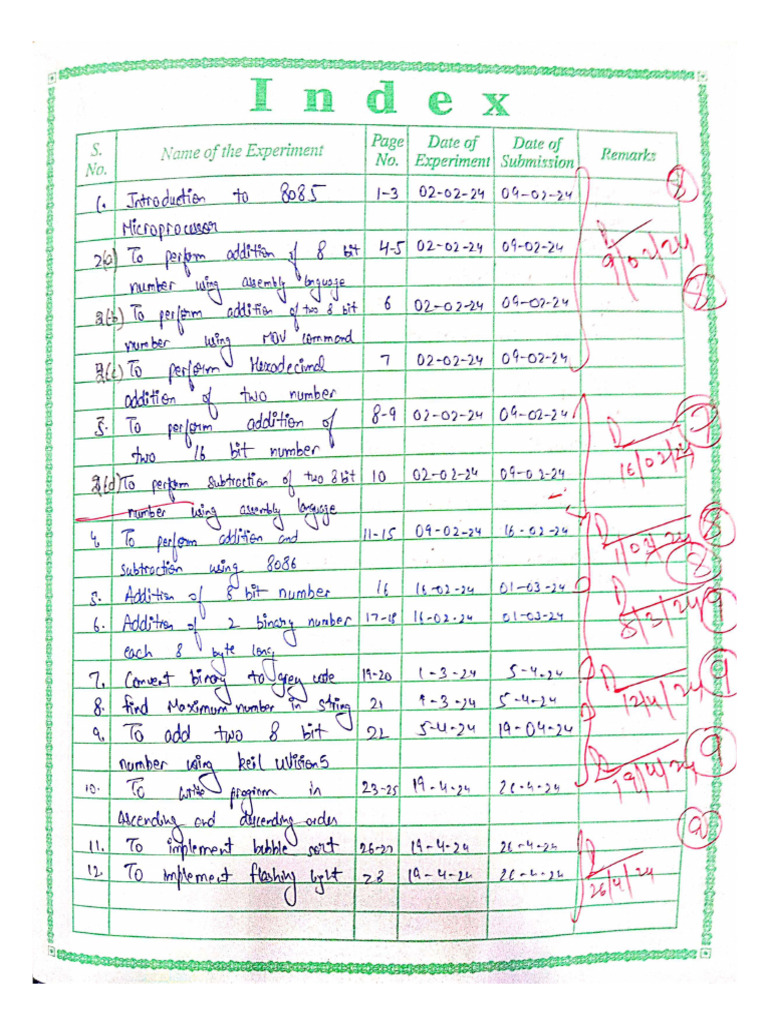 Index
S. No. Name of the Experiment Page No. Date of Experiment Date of Submission Remarks
1. Introduction to 8085 1-3 02-02-24 09-02-24 8
Microprocessor
2(a) To perform addition of 8 bit 4-5 02-02-24 09-02-24 9/02/24
number using assembly language 8
2(b) To perform addition of two 8 bit 6 02-02-24 09-02-24
number using MOV command
2(c) To perform Hexadecimal 7 02-02-24 09-02-24
addition of two number
3. To perform addition of 8-9 02-02-24 09-02-24 7
two 16 bit number 16/02/24
2(d) To perform subtraction of two 8 bit 10 02-02-24 09-02-24
number using assembly language
4. To perform addition and 11-15 09-02-24 16-02-24 8
subtraction using 8086 8
5. Addition of 8 bit number 16 16-02-24 01-03-24 9
6. Addition of 2 binary number 17-18 16-02-24 01-03-24 8/3/24
each 8 byte long
7. Convert binary to grey code 19-20 1-3-24 5-4-24 9
8. find Maximum number in string 21 5-4-24 12/4/24
9. To add two 8 bit 22 5-4-24 19-04-24 9
number using keil uVision5 19/4/24
10. To write program in 23-25 19-4-24 26-4-24
Ascending and descending order 9
11. To implement bubble sort 26-27 19-4-24 26-4-24
12. To implement flashing light 28 19-4-24 26-4-24 26/4/24